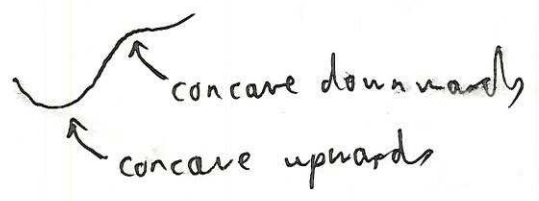 concave downwards
concave upwards